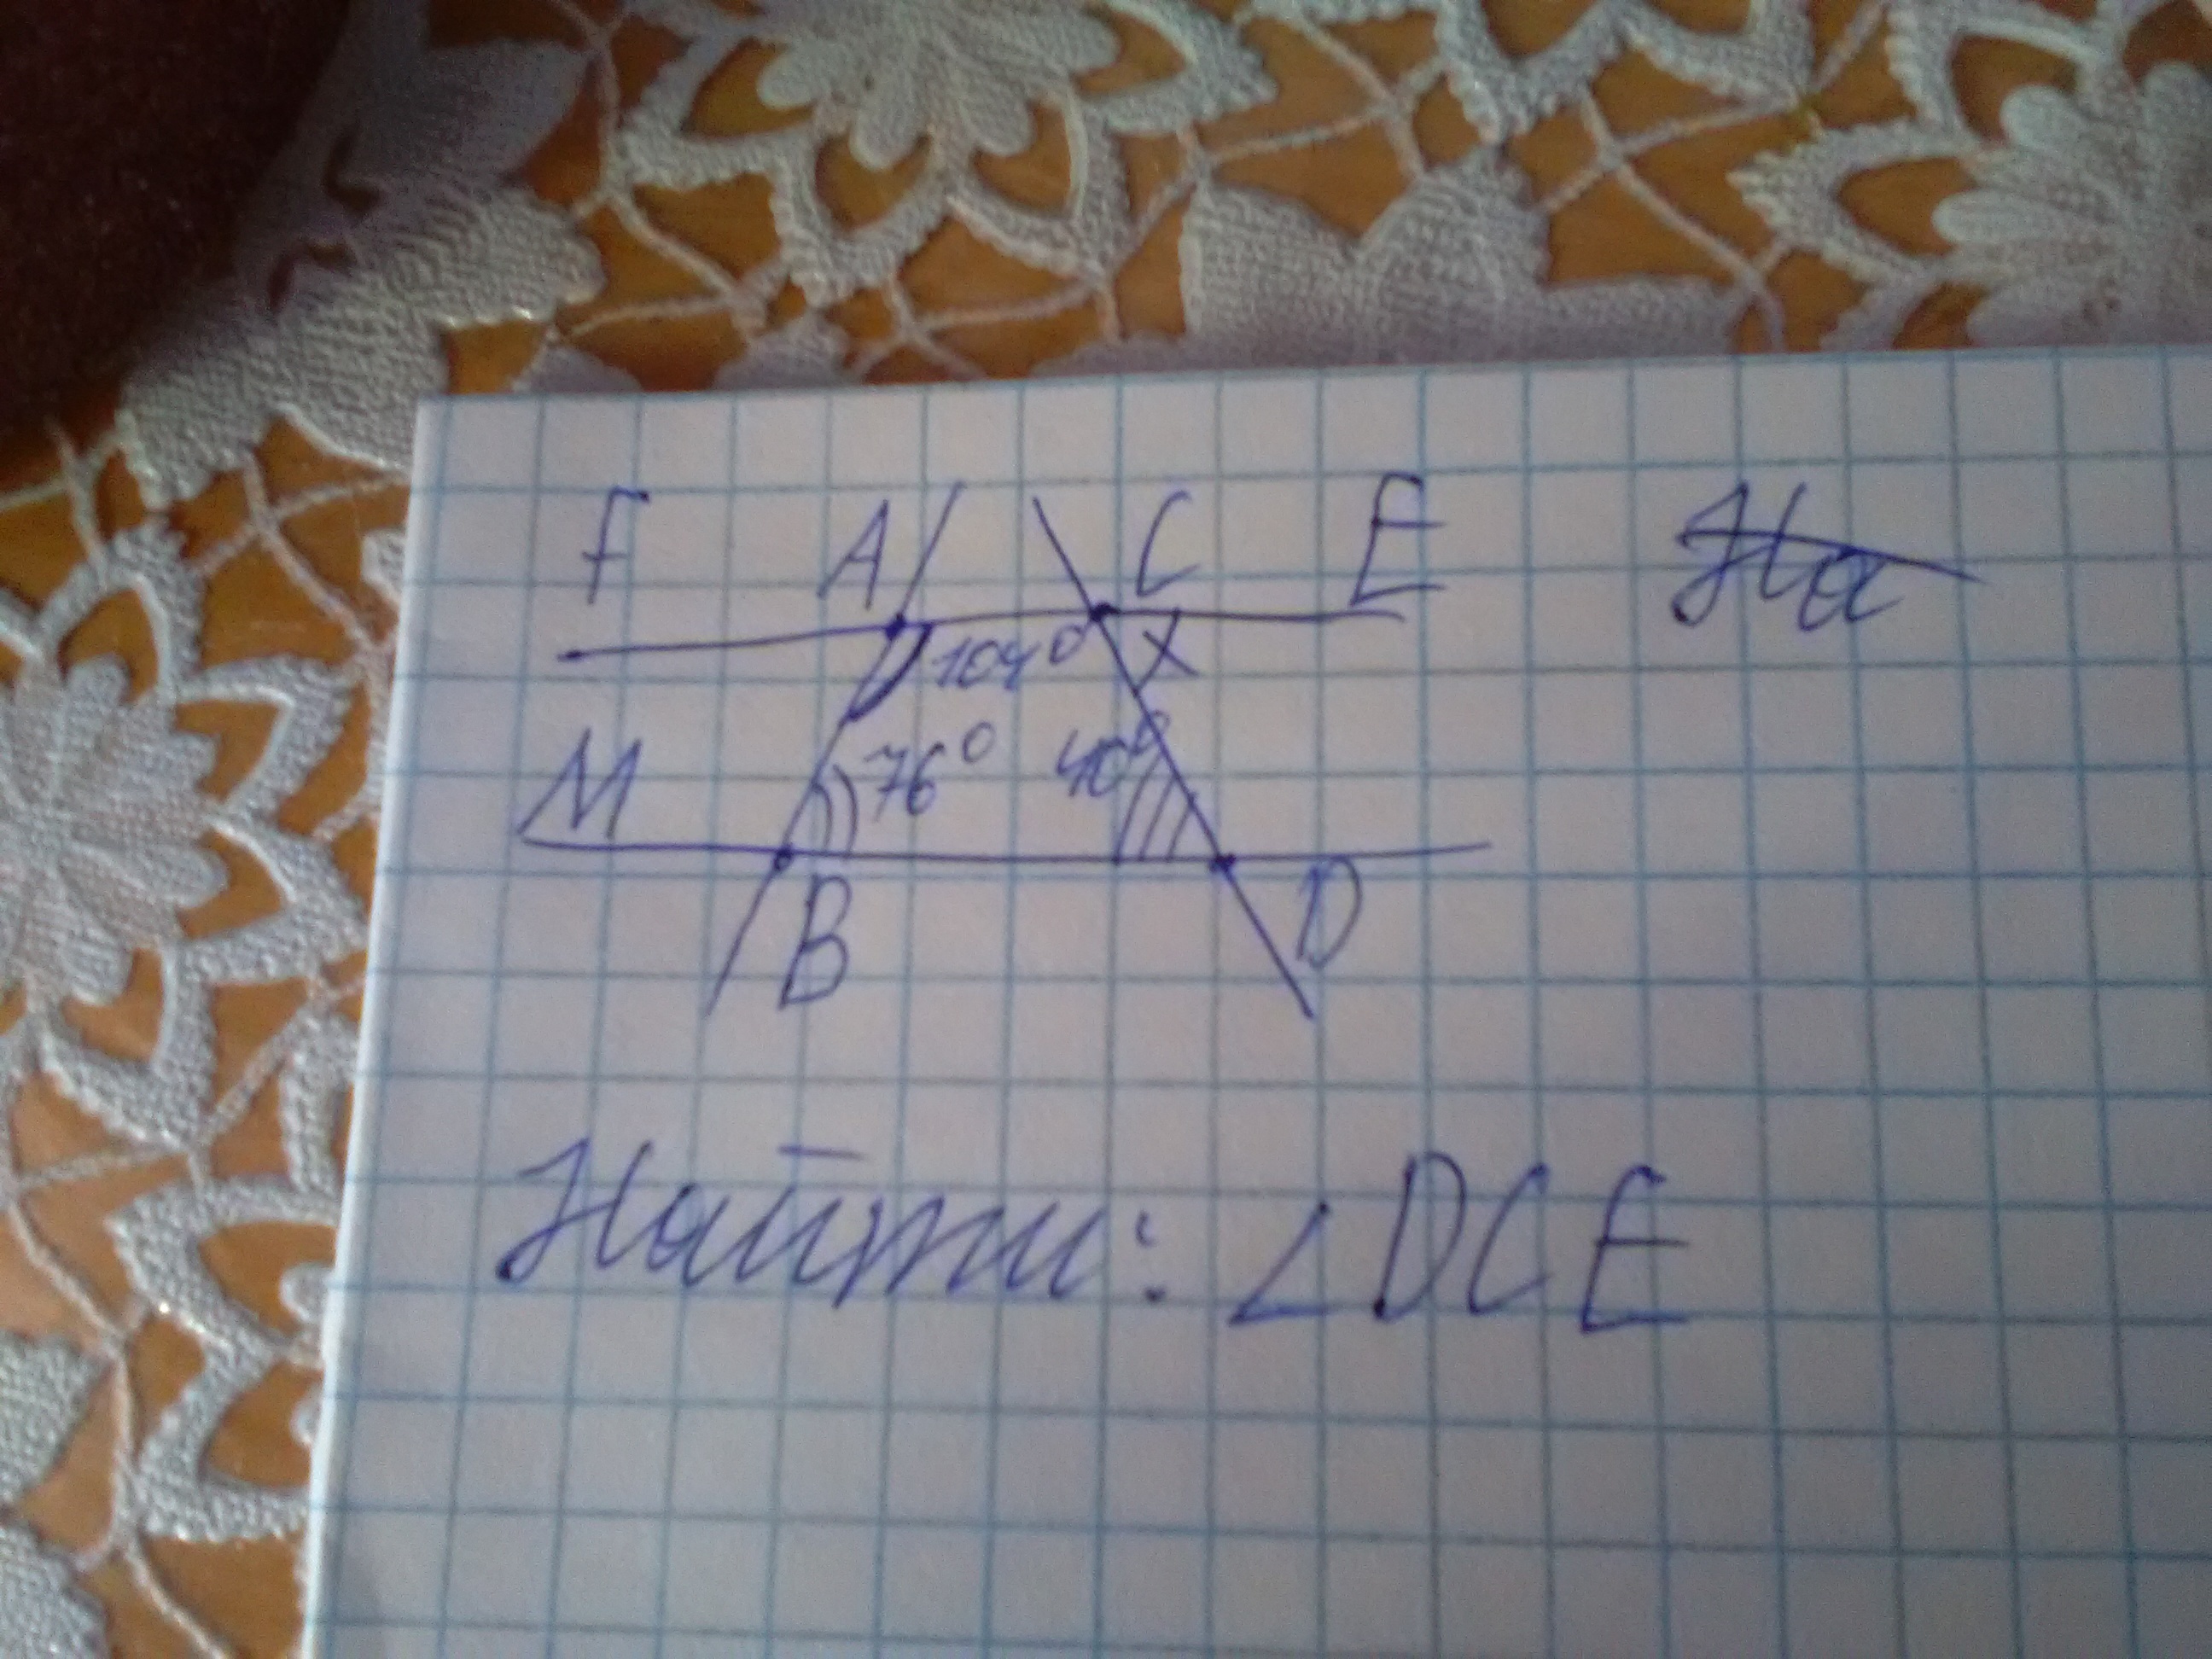 F A C E
На
104° X
M 76° 40°
B D
Найти: ∠DCE